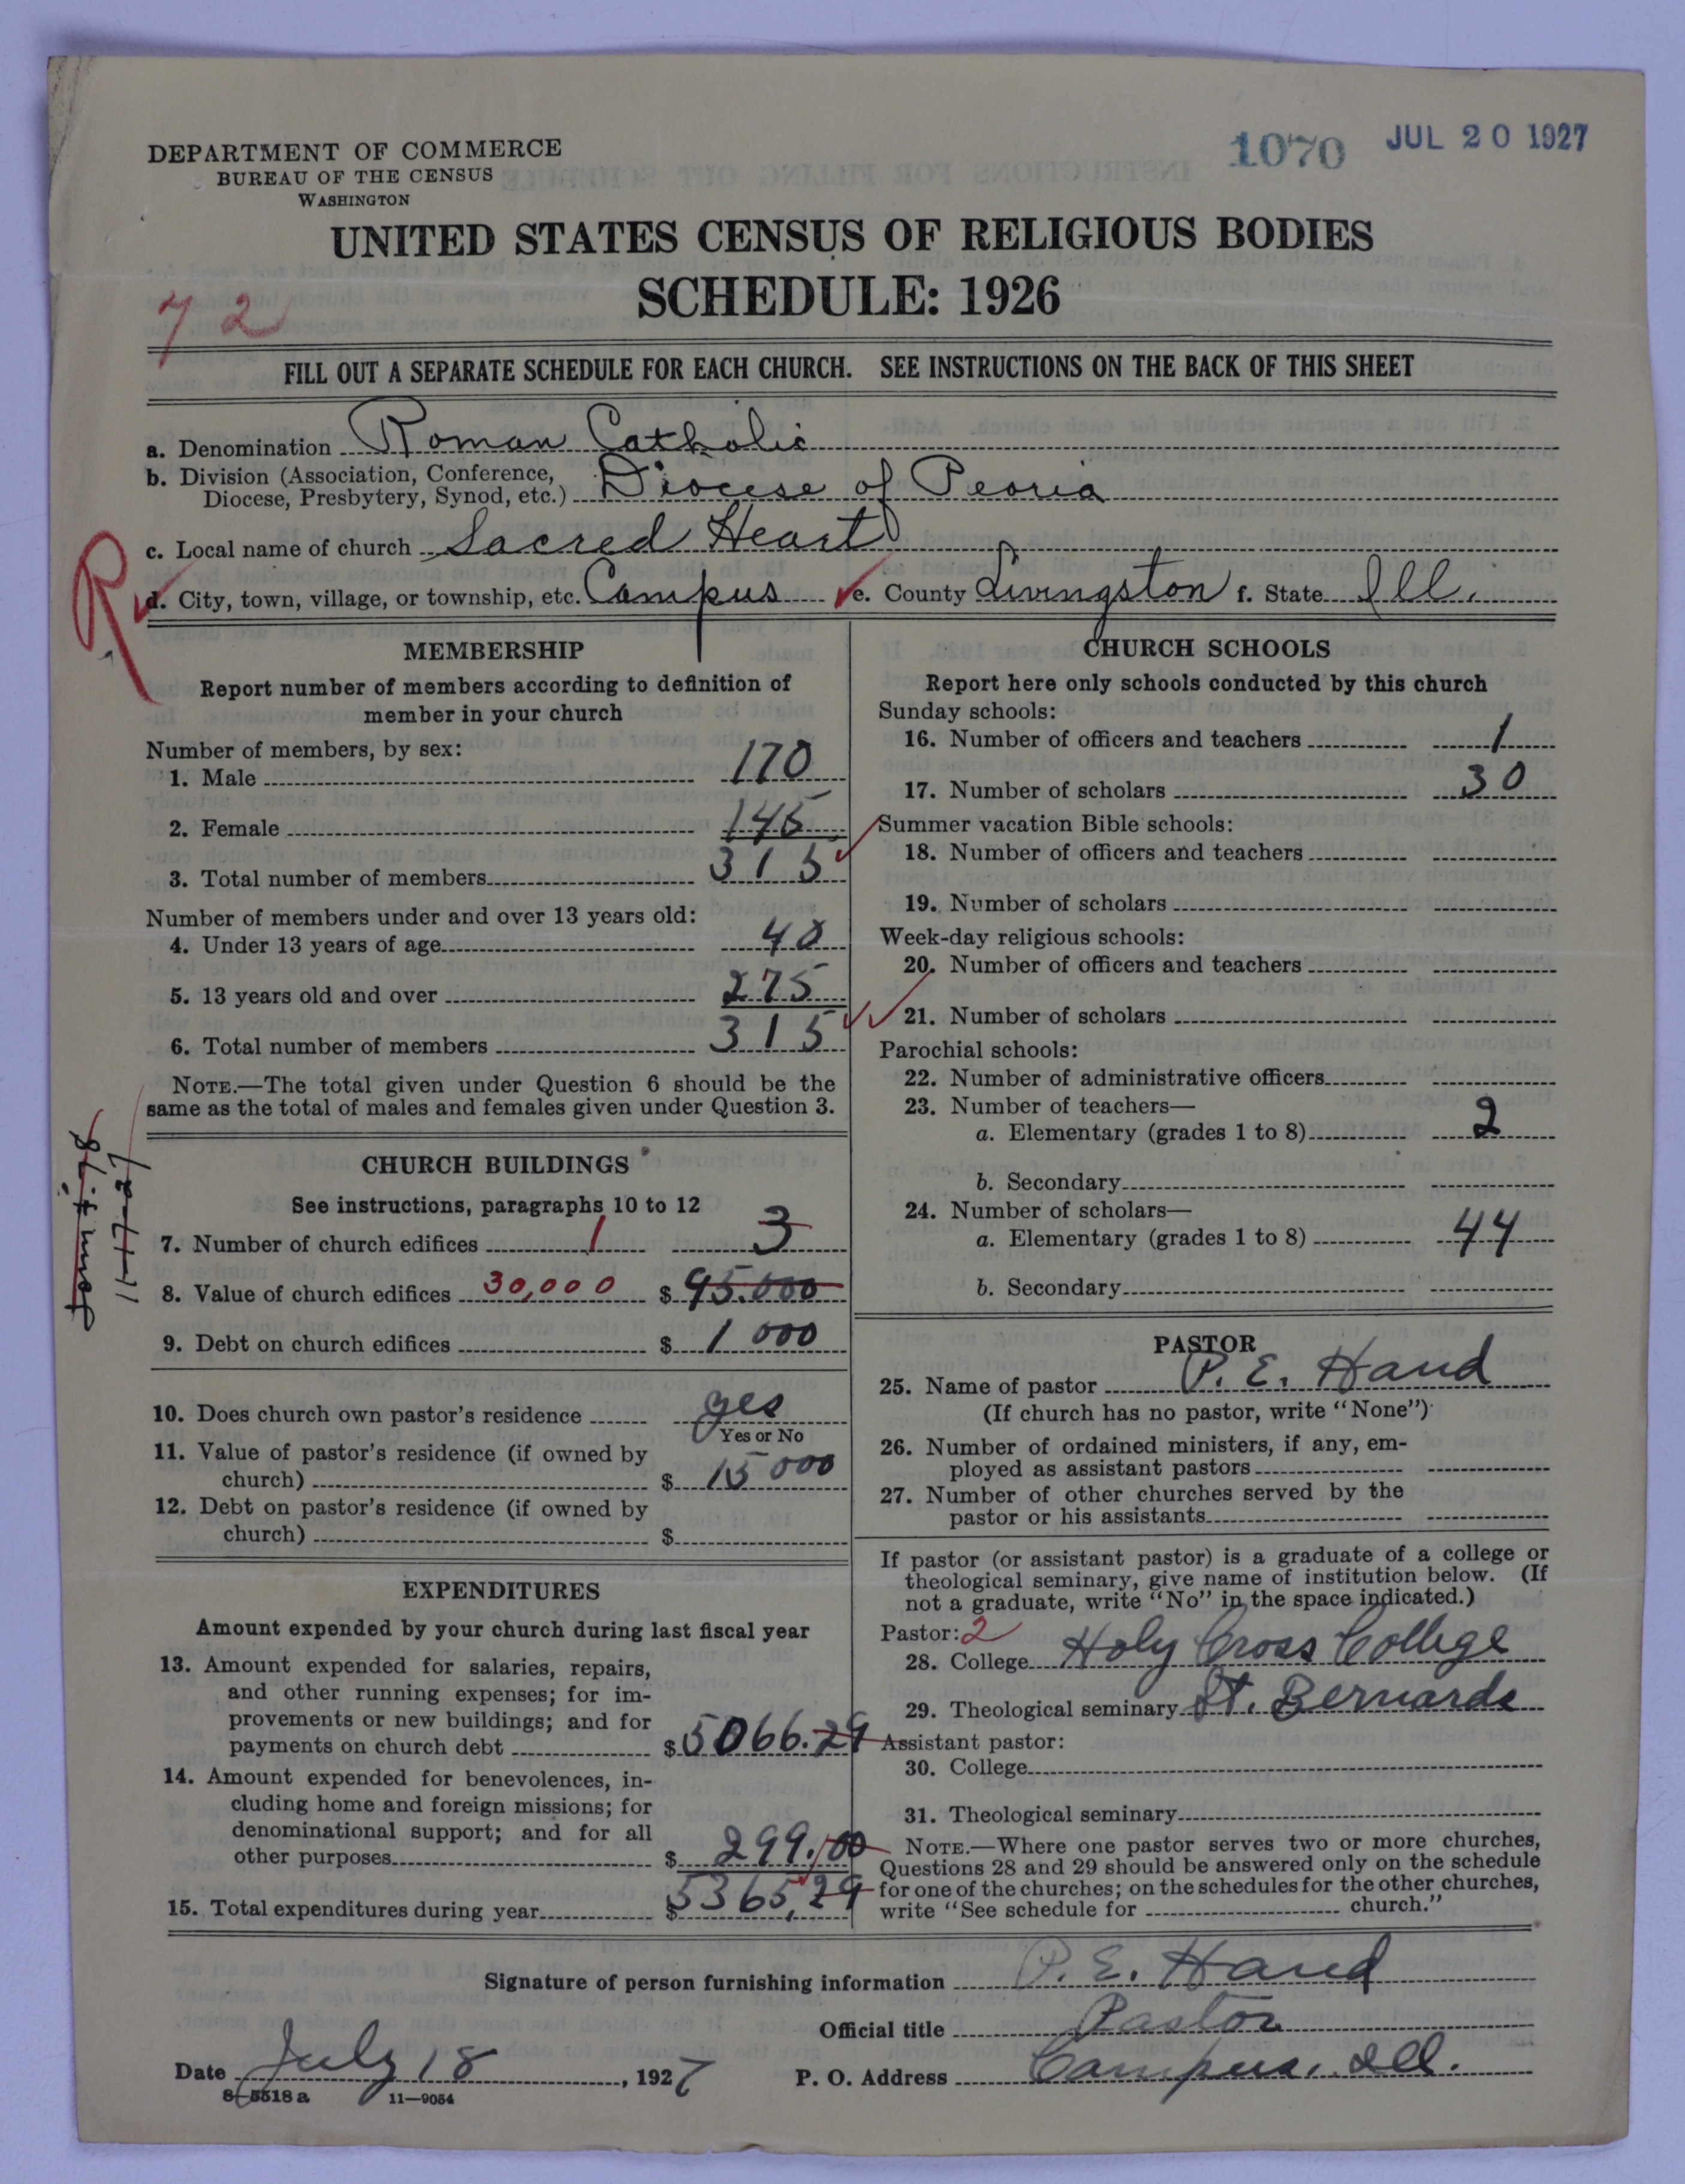 DEPARTMENT OF COMMERCE
BUREAU OF THE CENSUS
WASHINGTON
1070 JUL 20 1927
UNITED STATES CENSUS OF RELIGIOUS BODIES
SCHEDULE: 1926
72
FILL OUT A SEPARATE SCHEDULE FOR EACH CHURCH. SEE INSTRUCTIONS ON THE BACK OF THIS SHEET
a. Denomination Roman Catholic
b. Division (Association, Conference,
Diocese, Presbytery, Synod, etc.) Diocese of Peoria
c. Local name of church Sacred Heart
R
d. City, town, village, or township, etc. Campus e. County Livingston f. State Ill.
MEMBERSHIP
Report number of members according to definition of
member in your church
Number of members, by sex:
1. Male 170
2. Female 145
3. Total number of members 315
Number of members under and over 13 years old:
4. Under 13 years of age 40
5. 13 years old and over 275
6. Total number of members 315
NOTE.—The total given under Question 6 should be the
same as the total of males and females given under Question 3.
CHURCH BUILDINGS
See instructions, paragraphs 10 to 12
7. Number of church edifices 1 3
8. Value of church edifices 30,000 $ 95.000
9. Debt on church edifices $ 1 000
10. Does church own pastor's residence yes
Yes or No
11. Value of pastor's residence (if owned by
church) $ 15 000
12. Debt on pastor's residence (if owned by
church) $
EXPENDITURES
Amount expended by your church during last fiscal year
13. Amount expended for salaries, repairs,
and other running expenses; for im-
provements or new buildings; and for
payments on church debt $ 5066.29
14. Amount expended for benevolences, in-
cluding home and foreign missions; for
denominational support; and for all
other purposes $ 299.00
15. Total expenditures during year $ 5365,29
CHURCH SCHOOLS
Report here only schools conducted by this church
Sunday schools:
16. Number of officers and teachers 1
17. Number of scholars 30
Summer vacation Bible schools:
18. Number of officers and teachers
19. Number of scholars
Week-day religious schools:
20. Number of officers and teachers
21. Number of scholars
Parochial schools:
22. Number of administrative officers
23. Number of teachers—
a. Elementary (grades 1 to 8) 2
b. Secondary
24. Number of scholars—
a. Elementary (grades 1 to 8) 44
b. Secondary
PASTOR
25. Name of pastor P. E. Hand
(If church has no pastor, write "None")
26. Number of ordained ministers, if any, em-
ployed as assistant pastors
27. Number of other churches served by the
pastor or his assistants
If pastor (or assistant pastor) is a graduate of a college or
theological seminary, give name of institution below. (If
not a graduate, write "No" in the space indicated.)
Pastor: 2
28. College Holy Cross College
29. Theological seminary St. Bernards
Assistant pastor:
30. College
31. Theological seminary
NOTE.—Where one pastor serves two or more churches,
Questions 28 and 29 should be answered only on the schedule
for one of the churches; on the schedules for the other churches,
write "See schedule for church."
Signature of person furnishing information P. E. Hand
Official title Pastor
Date July 18, 1927 P. O. Address Campus, Ill.
8-5518 a 11-9054